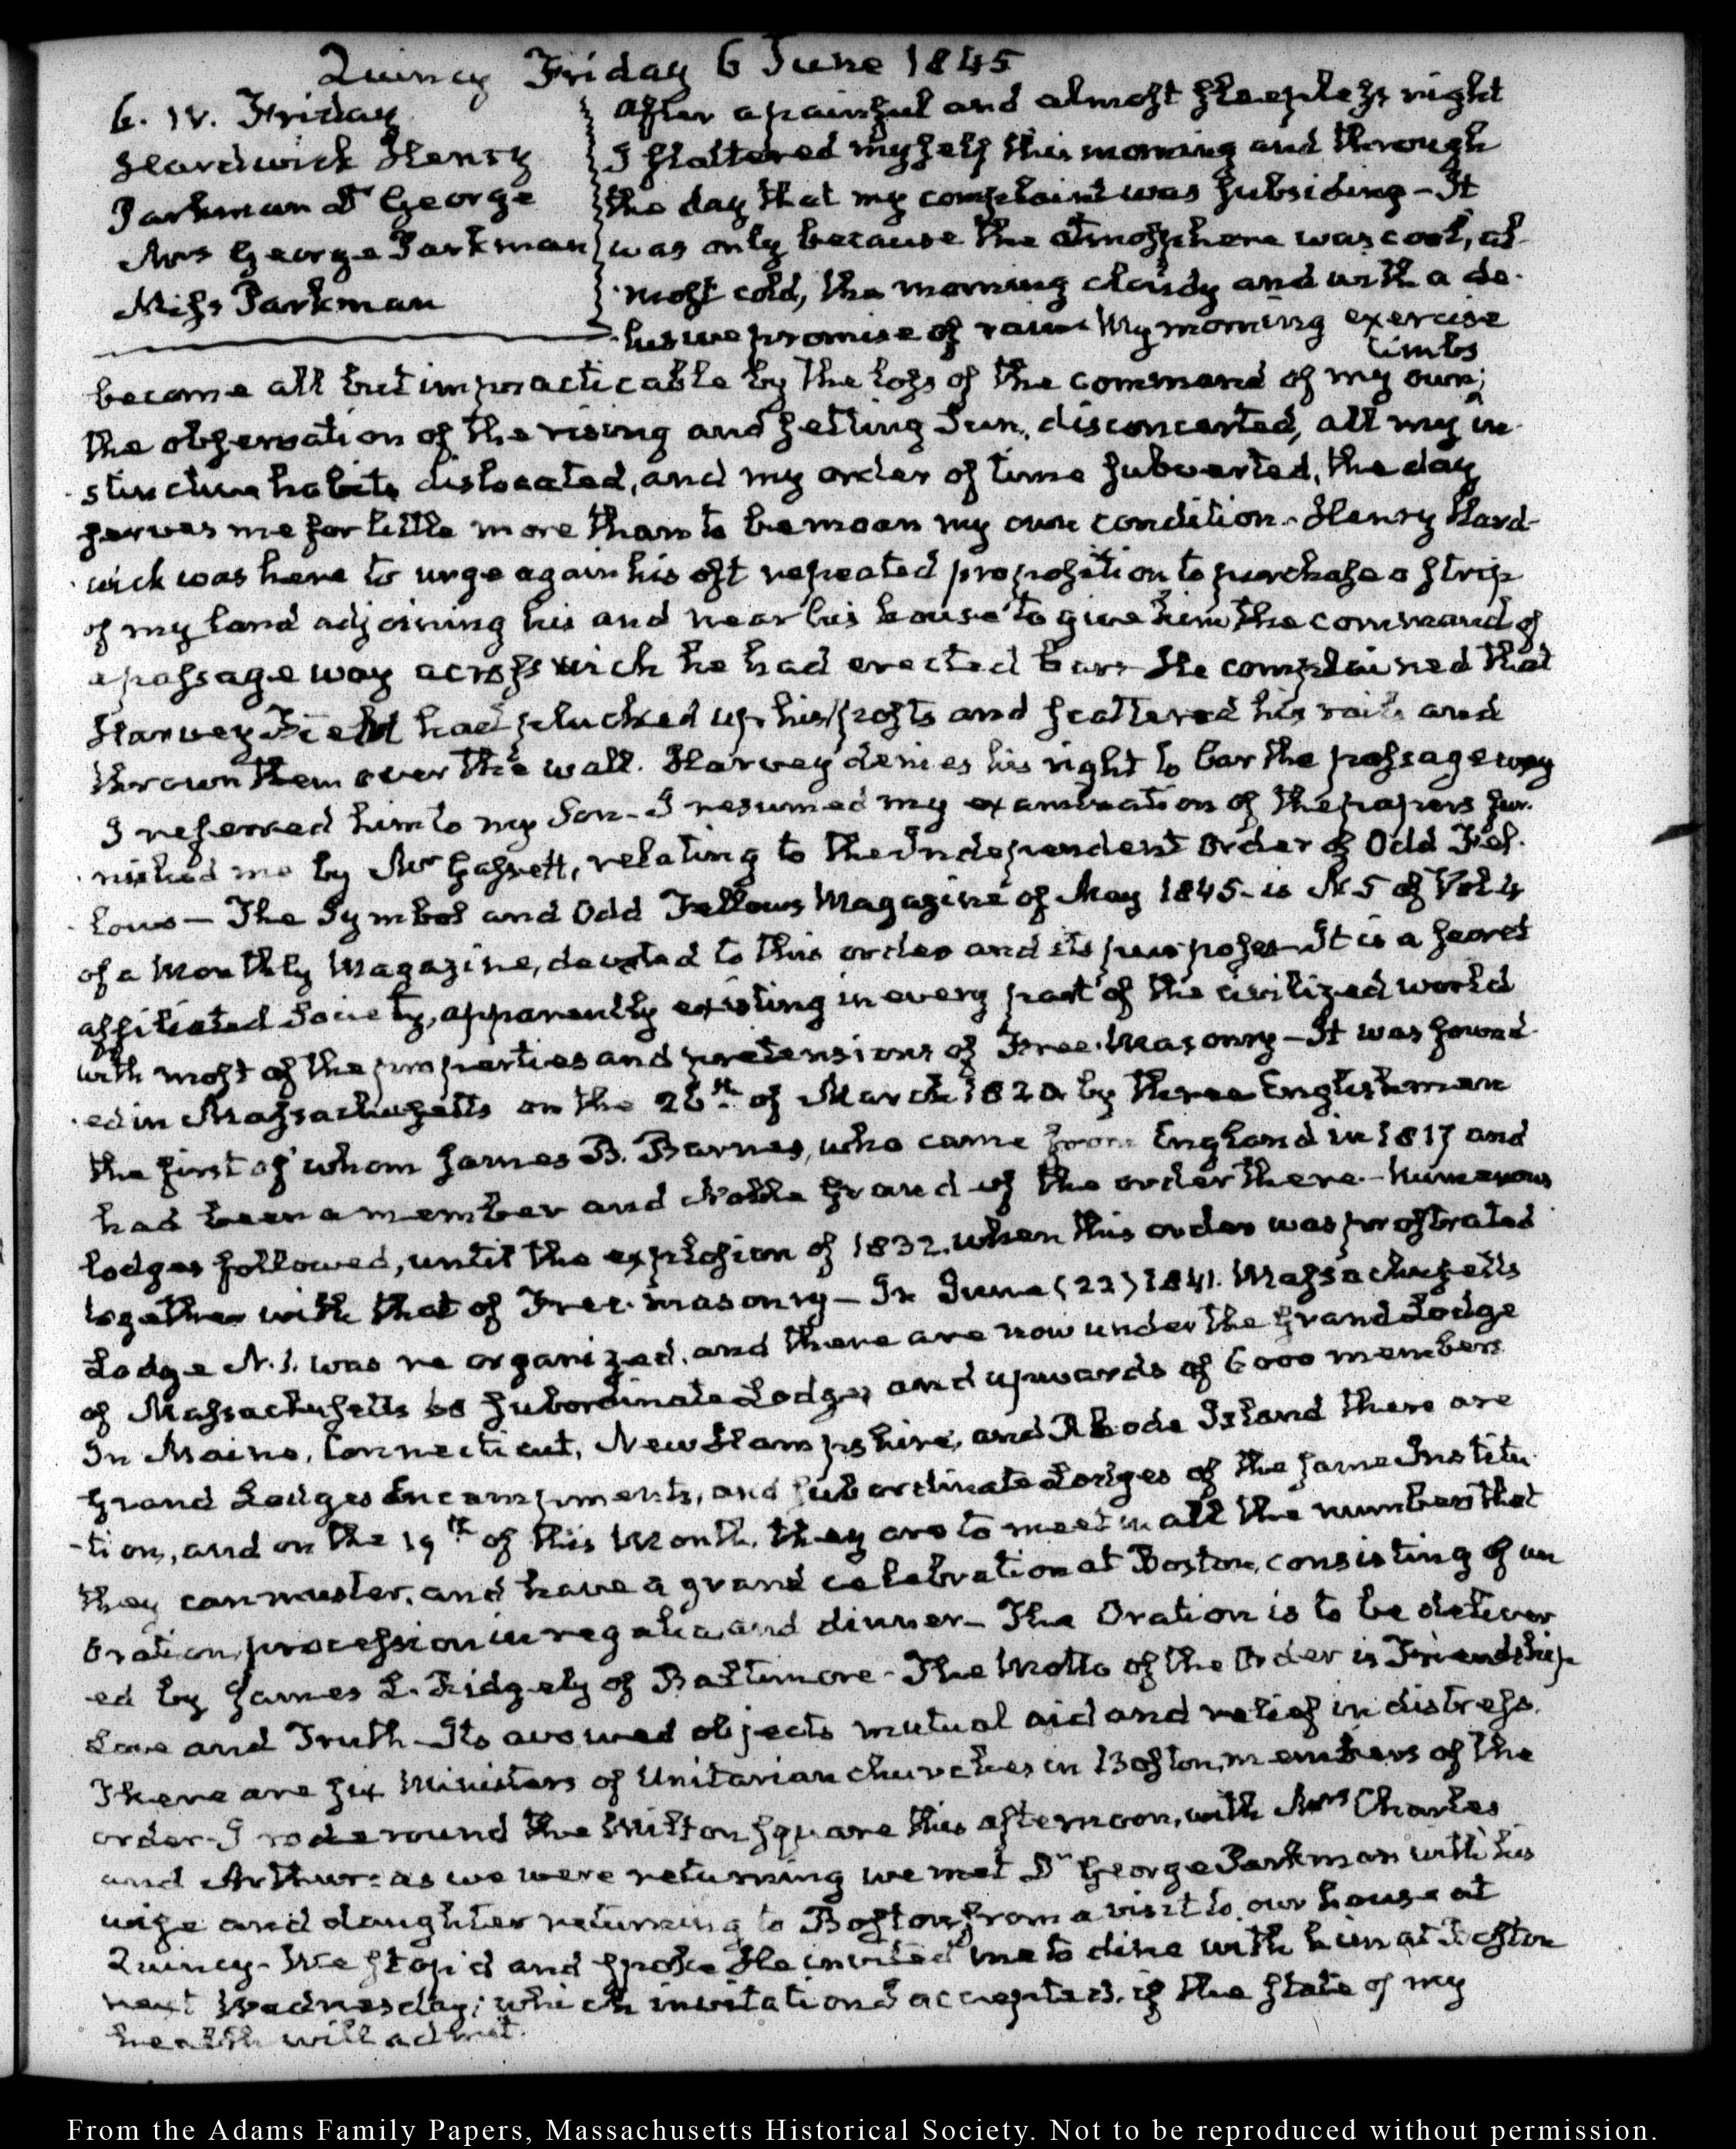 Quincy Friday 6 June 1845
6. IV. Friday
Hardwick Henry
Parkman Dr George
Mrs George Parkman
Miss Parkman
After a painful and almost sleepless night
I flattered myself this morning and through
the day that my complaint was subsiding – It
was only because the atmosphere was cool, al-
most cold, the morning cloudy and with a de-
lusive promise of rain. My morning exercise
limbs
become all but impracticable by the loss of the command of my own;
the observation of the rising and setting Sun, disconcerted, all my in-
stinctive habits dislocated, and my order of time subverted, the day
serves me for little more than to bemoan my own condition. Henry Hard-
wick was here to urge again his oft repeated proposition to purchase a strip
of my land adjoining his and near his house to give him the command of
a passage way across which he had erected bars He complained that
Harvey Field had plucked up his posts and scattered his rails and
thrown them over the wall. Harvey denies his right to bar the passage way
I referred him to my Son – I resumed my examination of the papers fur-
nished me by Mr Gassett, relating to the Independent Order of Odd Fel-
lows – The Symbol and Odd Fellows Magazine of May 1845 – is N. 5 of Vol 4
of a Monthly Magazine, devoted to this order and its purposes – It is a secret
affiliated Society, apparently existing in every part of the civilized world
with most of the properties and pretensions of Free-Masonry – It was found-
ed in Massachusetts on the 26th of March 1820 by three Englishmen
the first of whom James B. Barnes, who came from England in 1817 and
had been a member and Noble Grand of the order there – Numerous
lodges followed, until the explosion of 1832. when this order was prostrated
together with that of Free-masonry – In June (22) 1841. Massachusetts
Lodge N. 1. was re organized. and there are now under the Grand Lodge
of Massachusetts subordinate Lodges and upwards of 6000 members
In Maine, Connecticut, New Hampshire, and Rhode Island there are
Grand Lodges Encampments, and subordinate Lodges of the same Institu-
-tion, and on the 19th of this Month, they are to meet in all the numbers that
they can muster, and have a grand celebration at Boston, consisting of an
Oration, procession in regalia and dinner – The Oration is to be deliver
ed by James L. Ridgely of Baltimore – The Motto of the Order is Friendship
Love and Truth – Its avowed objects mutual aid and relief in distress.
There are six Ministers of Unitarian churches in Boston, members of the
order – I rode round the Milton square this afternoon, with Mrs Charles
and Arthur: as we were returning we met Dr George Parkman with his
wife and daughter returning to Boston, from a visit to our house at
Quincy – We stop'd and spoke He invited me to dine with him at Boston
next Wednesday; which invitation I accepted. if the state of my
health will admit.
From the Adams Family Papers, Massachusetts Historical Society. Not to be reproduced without permission.